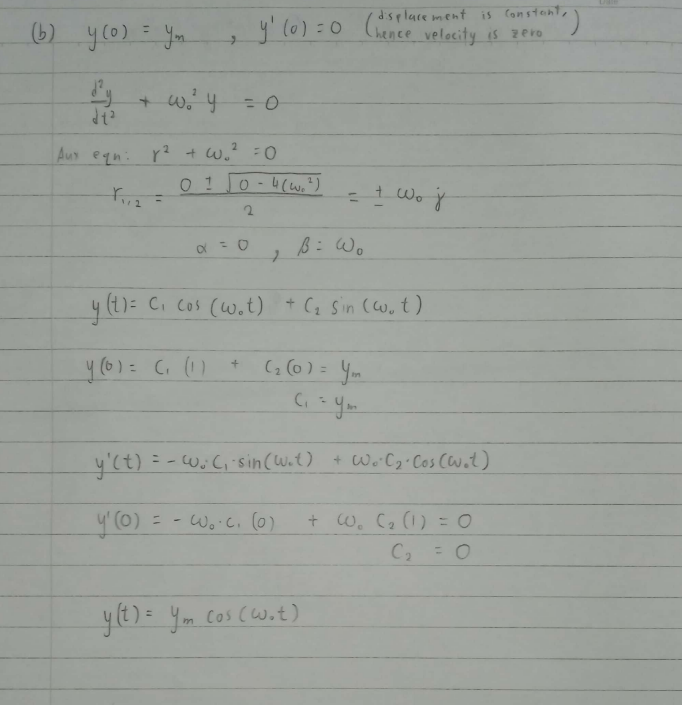 (b) y(0) = yₘ , y'(0) = 0 (dsplacement is constant, hence velocity is zero)
d²y/dt² + ω₀² y = 0
Aux eqn: r² + ω₀² = 0
r₁,₂ = (0 ± √(0 - 4(ω₀²)))/2 = ± ω₀ j
α = 0 , β = ω₀
y(t) = C₁ cos(ω₀t) + C₂ sin(ω₀t)
y(0) = C₁ (1) + C₂(0) = yₘ
C₁ = yₘ
y'(t) = - ω₀·C₁·sin(ω₀t) + ω₀·C₂·cos(ω₀t)
y'(0) = - ω₀·C₁ (0) + ω₀ C₂ (1) = 0
C₂ = 0
y(t) = yₘ cos(ω₀t)